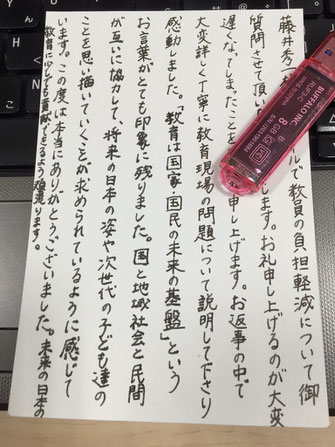 藤井秀 ルで教員の負担軽減について御
質問させて頂い します。お礼申し上げるのが大変
遅くなってしまったことを 申し上げます。お返事の中で
大変詳しく丁寧に教育現場の問題について説明して下さり
感動しました。「教育は国家・国民の未来の基盤」という
お言葉がとても印象に残りました。国と地域社会と民間
が互いに協力して、将来の日本の姿や次世代の子ども達の
ことを思い描いていくことが求められているように感じて
います。この度は本当にありがとうございました。未来の日本の
教育に少しでも貢献できるよう頑張ります。
BUFFALO INC.
8 GB